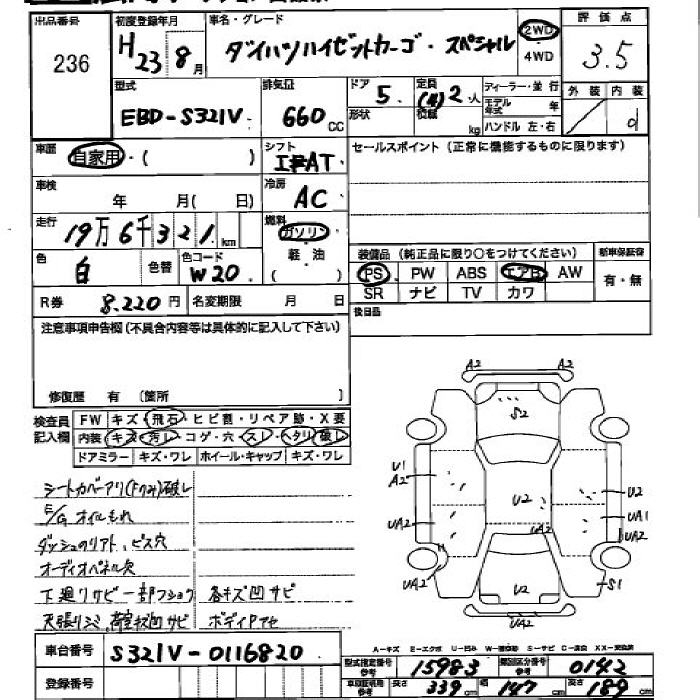 出品番号
236
初度登録年月
H23 8月
車名・グレード
ダイハツハイゼットカーゴ・スペシャル
2WD
・
4WD
評価点
3.5
外装 内装
d
型式
EBD-S321V
排気量
660 CC
ドア
5.
形状
定員
(4)2人
積載
kg
ディーラー・並行
モデル年式 年
ハンドル 左・右
車歴
自家用・( )
シフト
AT
セールスポイント (正常に機能するものに限ります)
車検
年 月( 日)
冷房
AC
走行
19万6千321km
燃料
ガソリン
軽・油
( )
色
白
色替
色コード
W20
装備品 (純正品に限り○をつけてください)
PS PW ABS エアB AW
SR ナビ TV カワ
新車保証書
有・無
R券 8.220円
名変期限 月 日
後日品
注意事項申告欄(不具合内容等は具体的に記入して下さい)
修復歴 有 〔箇所 〕
検査員
記入欄
FW キズ・飛石・ヒビ割・リペア跡・X要
内装 キズ・汚レ・コゲ・穴・スレ・ヘタリ・破レ
ドアミラー キズ・ワレ ホイール・キャップ キズ・ワレ
シートカバーアリ(下クタミ)破レ
E/Gオイルもれ
ダッシュのリアト、ビス穴
オーディオパネル欠
下廻りサビ一部フショク 各キズ凹サビ
天張りシミ、荷室キズ凹サビ ボディPアセ
A2 A2
S2
U1
A2
UA2
UA2
U2
UA2
U2
UA1
UA2
S1
U2
UA2
車台番号
S321V-0116820
登録番号
A-キズ E-エクボ U-凹み W-補修跡 S-サビ C-腐食 XX-交換済
型式指定番号
参考
15983
類別区分番号
参考
0142
車検証明用
参考
長さ 339cm 幅 147cm 高さ 189cm